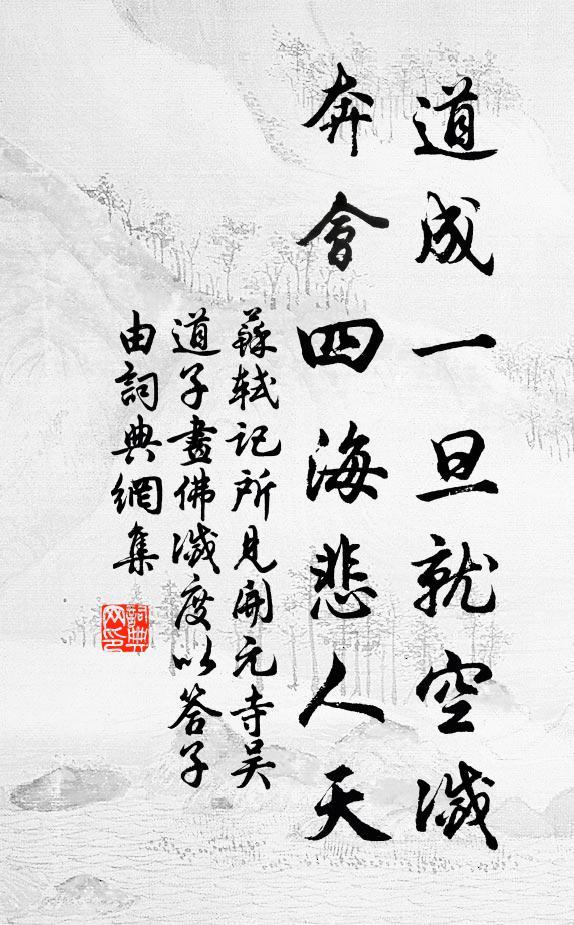 道成一旦就空滅
奔會四海悲人天
蘇軾記所見開元寺吳
道子畫佛滅度以答子
由詞典網集
詞典
网印